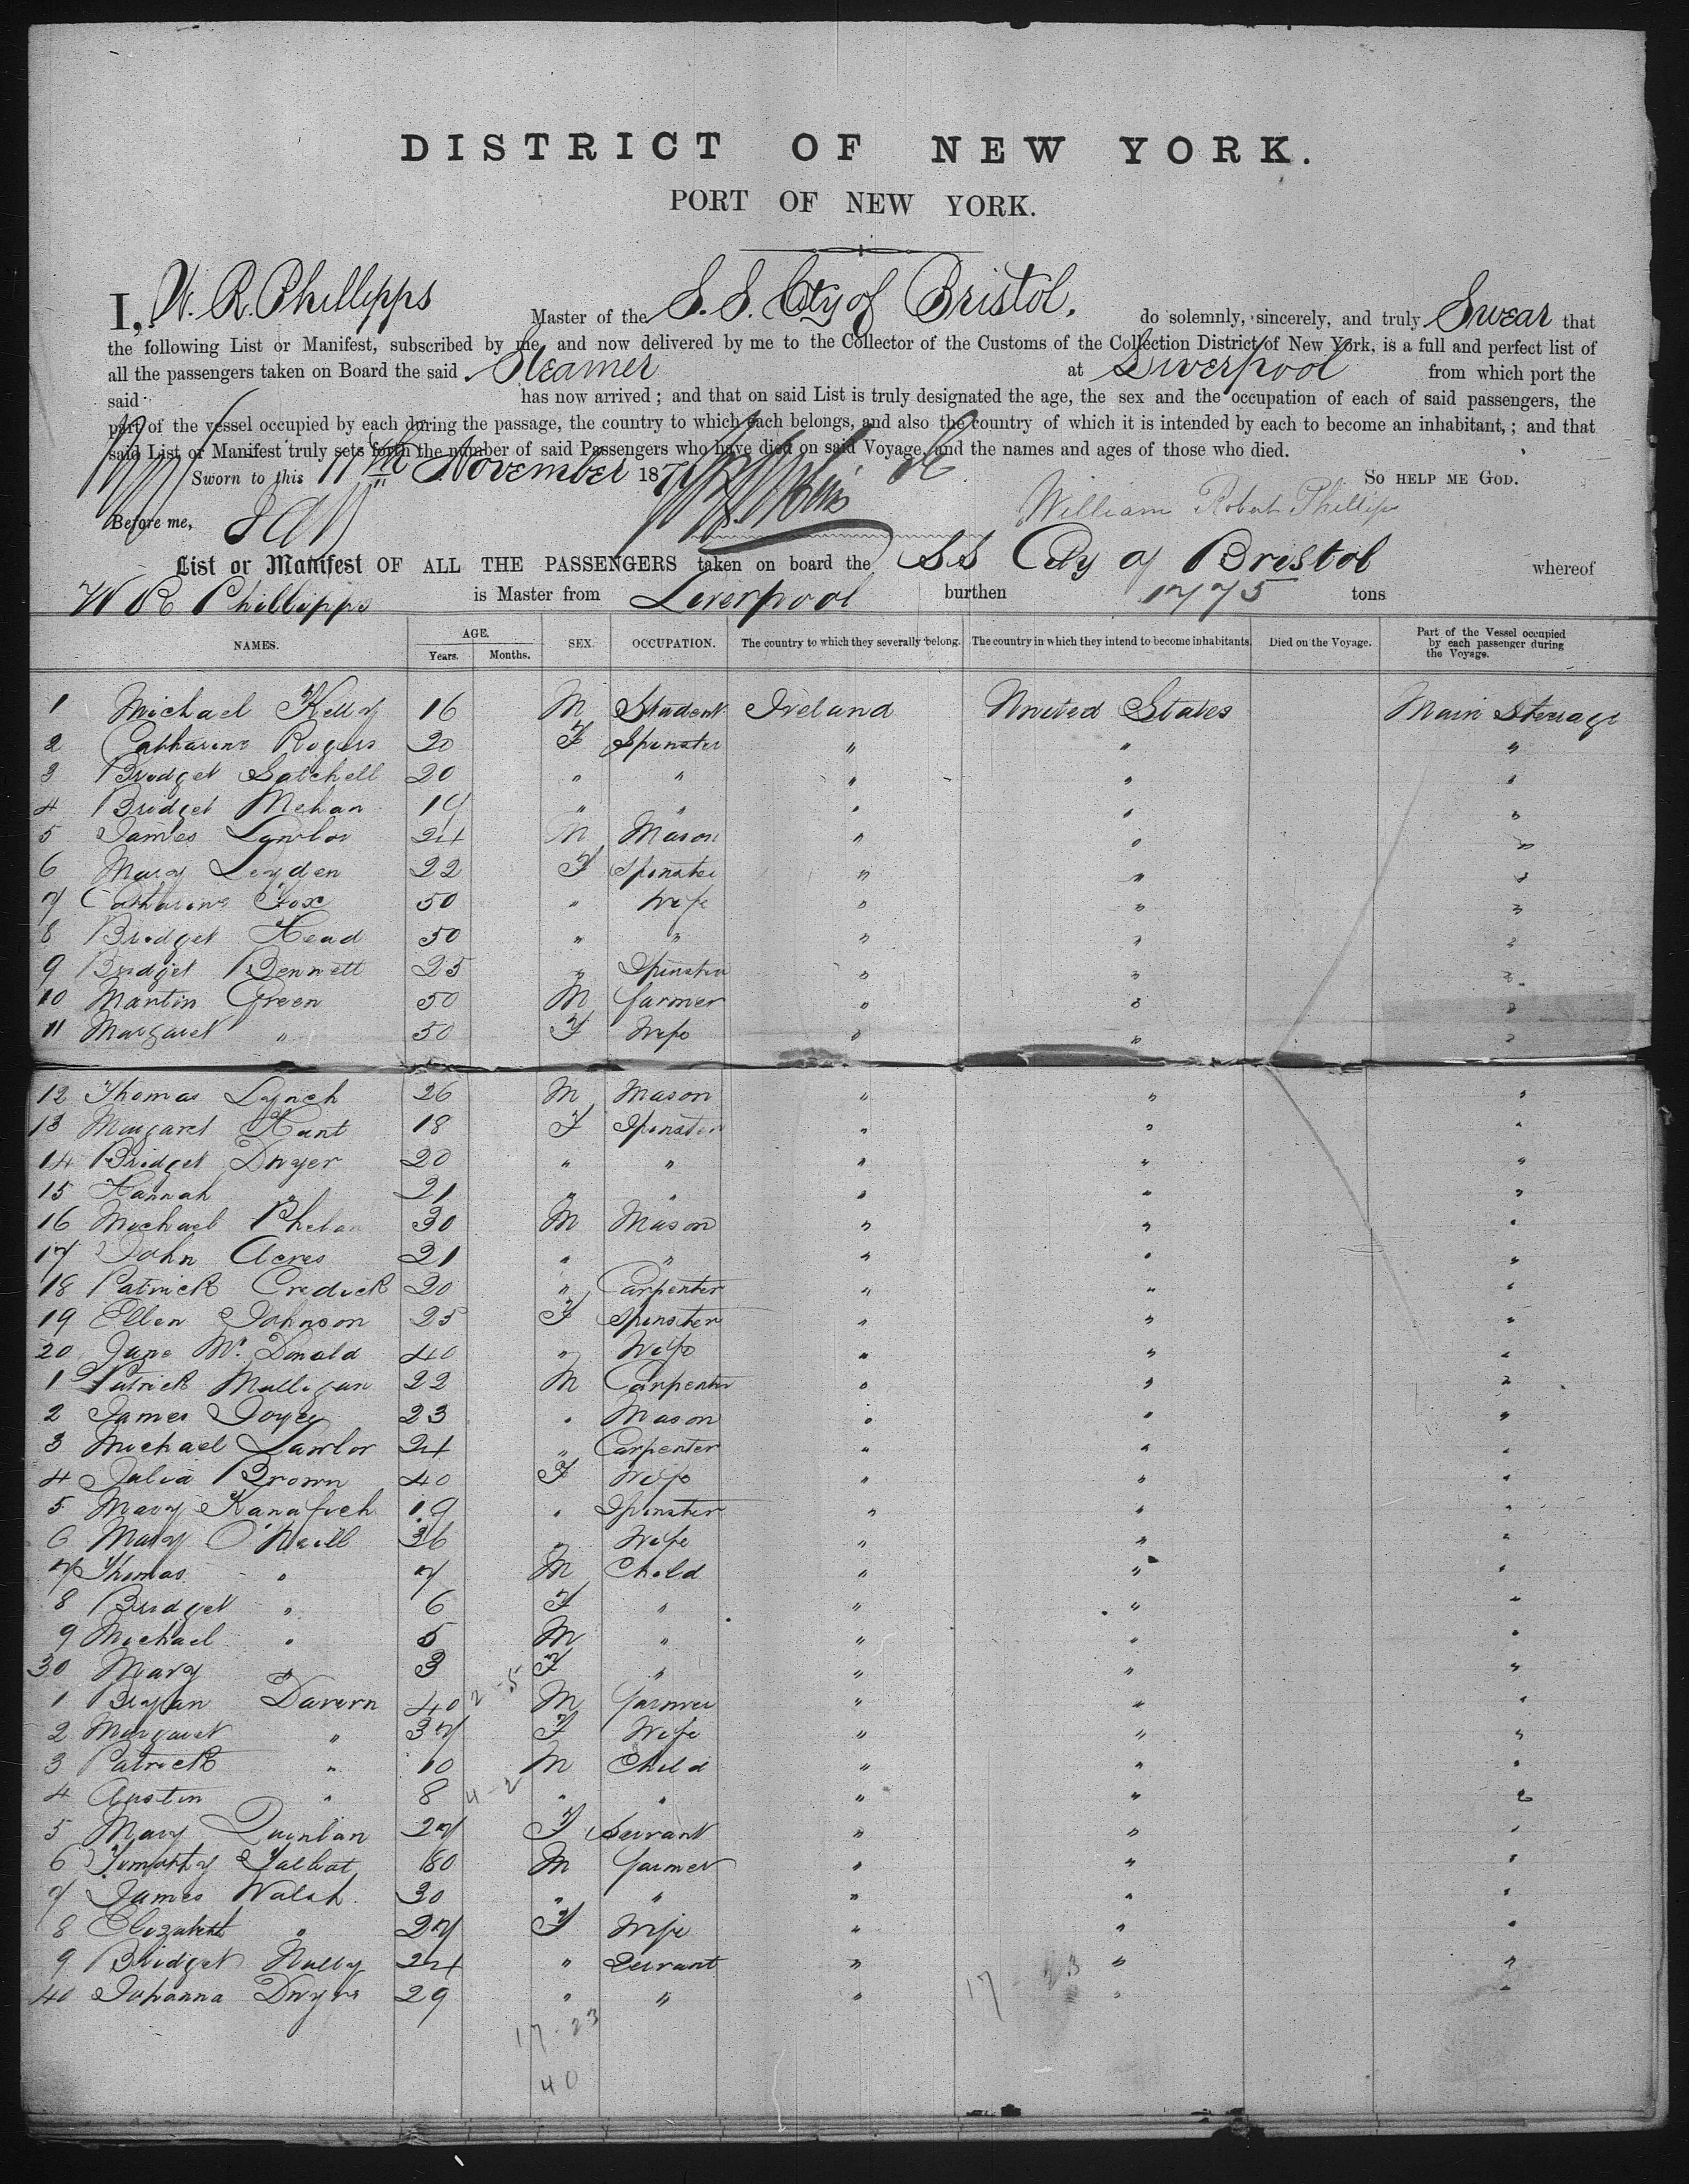 DISTRICT OF NEW YORK.
PORT OF NEW YORK.
I, W. R. Phillipps Master of the S. S. City of Bristol, do solemnly, sincerely, and truly Swear that
the following List or Manifest, subscribed by me, and now delivered by me to the Collector of the Customs of the Collection District of New York, is a full and perfect list of
all the passengers taken on Board the said Steamer at Liverpool from which port the
said has now arrived; and that on said List is truly designated the age, the sex and the occupation of each of said passengers, the
part of the vessel occupied by each during the passage, the country to which each belongs, and also the country of which it is intended by each to become an inhabitant,; and that
said List or Manifest truly sets forth the number of said Passengers who have died on said Voyage, and the names and ages of those who died.
Sworn to this 11th November 187 So HELP ME GOD.
William Robert Phillips
Before me,
List or Manifest OF ALL THE PASSENGERS taken on board the SS City of Bristol whereof
W R Phillipps is Master from Liverpool burthen 1775 tons
NAMES. AGE. Years. Months. SEX. OCCUPATION. The country to which they severally belong. The country in which they intend to become inhabitants. Died on the Voyage. Part of the Vessel occupied by each passenger during the Voyage.
1 Michael Kelly 16 M Student Ireland United States Main Steerage
2 Catharine Rogers 20 F Spinster " " "
3 Bridget Satchell 20 " " " " "
4 Bridget Mehan 19 " " " " "
5 James Lawlor 24 M Mason " " "
6 Mary Leyden 22 F Spinster " " "
7 Catharine Fox 50 " Wife " " "
8 Bridget Head 50 " " " " "
9 Bridget Bennett 25 " Spinster " " "
10 Martin Green 50 M farmer " " "
11 Margaret " 50 F Wife " " "
12 Thomas Lynch 26 M Mason " " "
13 Margaret Hunt 18 F Spinster " " "
14 Bridget Dwyer 20 " " " " "
15 Hannah " 21 " " " " "
16 Michael Phelan 30 M Mason " " "
17 John Acres 21 " " " " "
18 Patrick Credick 20 " Carpenter " " "
19 Ellen Johnson 25 F Spinster " " "
20 Jane Mc Donald 40 " Wife " " "
1 Patrick Mulligan 22 M Carpenter " " "
2 James Joyce 23 " Mason " " "
3 Michael Lawlor 24 " Carpenter " " "
4 Julia Brown 40 F Wife " " "
5 Mary Kanafich 19 " Spinster " " "
6 Mary O'Neill 36 " Wife " " "
7 Thomas " 7 M Child " " "
8 Bridget " 6 F " " " "
9 Michael " 5 M " " " "
30 Mary " 3 F " " " "
1 Bryan Davern 40 2-5 M farmer " " "
2 Margaret " 37 F Wife " " "
3 Patrick " 10 M Child " " "
4 Austin " 8 4-2 " " " " "
5 Mary Quinlan 27 F Servant " " "
6 Timothy Talbot 60 M farmer " " "
7 James Walsh 30 " " " " "
8 Elizabeth " 27 F Wife " " "
9 Bridget Nally 24 " Servant " " "
40 Johanna Dwyer 29 " " " " "
17-23
17-23
40